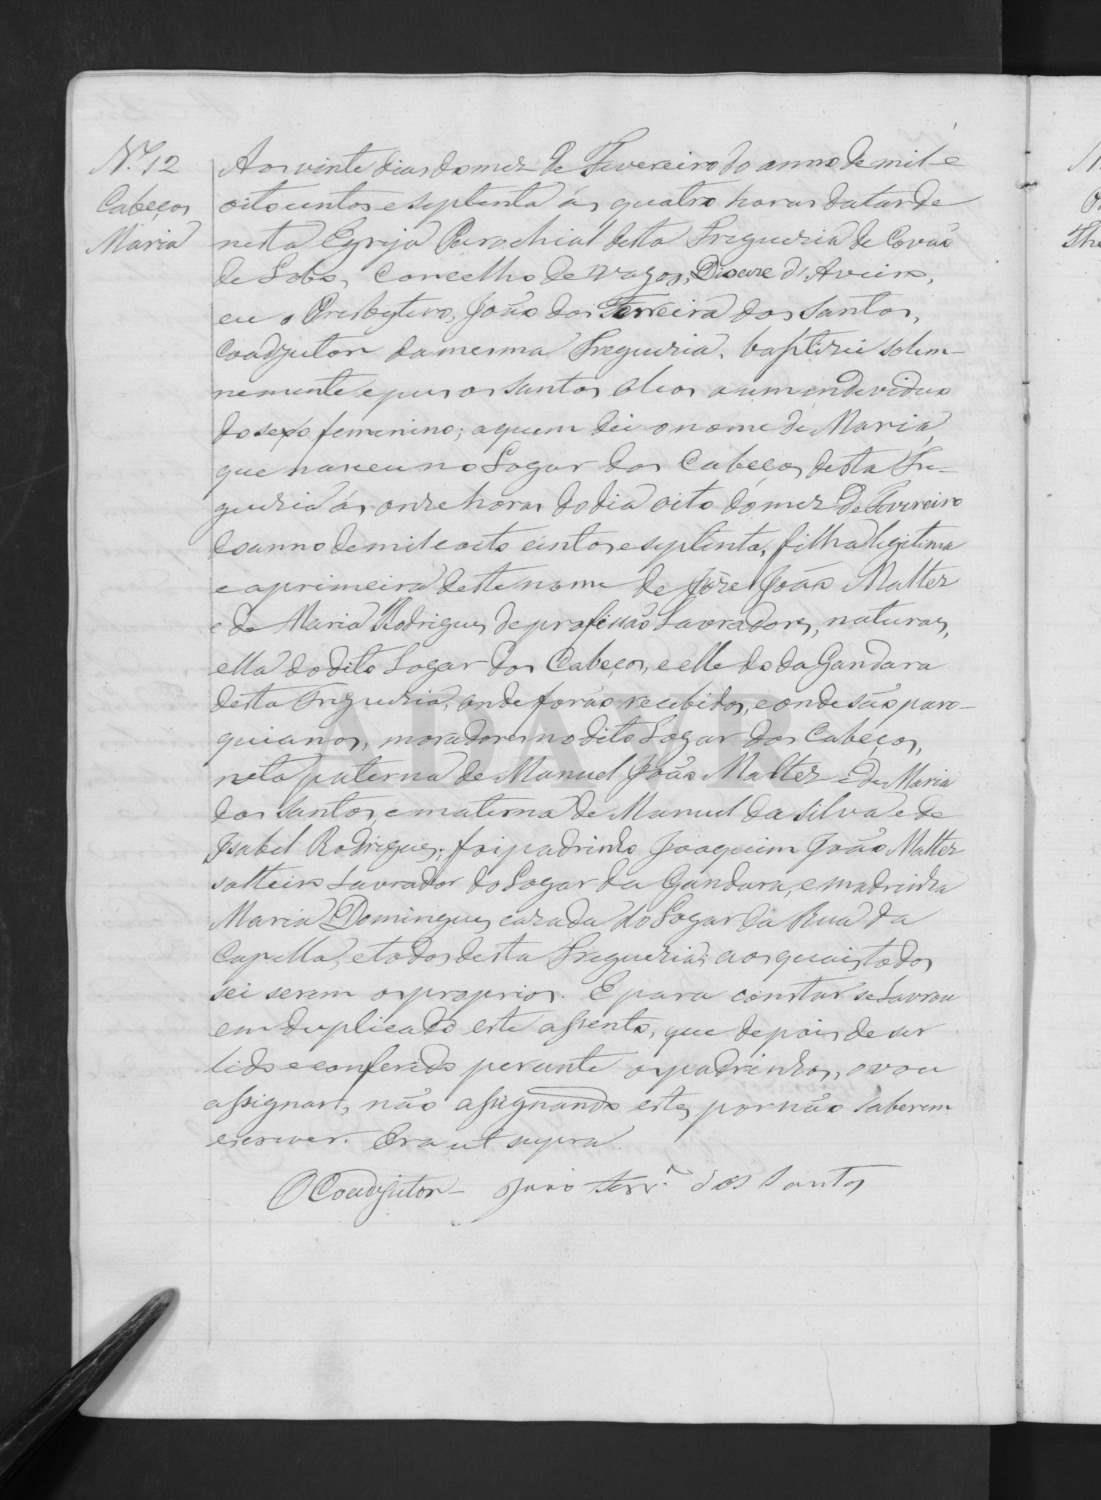 N.º 12
Cabeços
Maria
Aos vinte dias do mez de Fevereiro do anno de mil e
oito centos e septenta ás quatro horas da tarde
nesta Egreja Parochial desta Freguezia de Covão
de Lobo, Concelho de Vagos, Diocese d'Aveiro,
eu o Presbytero, João dos Ferreira dos Santos,
Coadjutor da mesma Freguezia, baptizei solem-
nemente e pus os Santos oleos a um individuo
do sexo femenino, a quem dei o nome de Maria,
que nasceu no Logar dos Cabeços desta Fre-
guezia ás onze horas do dia oito do mez de Fevereiro
do anno de mil e oito centos e septenta, filha legitima
e a primeira deste nome de José João Malter
e de Maria Rodrigues de profissão Lavradores, naturaes,
ella do dito Logar dos Cabeços, e elle do da Gandara
desta Freguezia, onde forão recebidos, e onde são paro-
quianos, moradores no dito Logar dos Cabeços,
neta paterna de Manuel João Malter e de Maria
dos Santos, e materna de Manuel da Silva e de
Isabel Rodrigues; foi padrinho Joaquim João Malter
solteiro Lavrador do Logar da Gandara, e madrinha
Maria Domingues cazada do Logar da Rua da
Capella, e todos desta Freguezia; aos quais todos
sei serem os proprios. E para constar se Lavrou
em duplicado este assento, que depois de ser
lido e conferido perante os padrinhos, o vou
assignar, não assignando estes por não saberem
escrever. Era ut supra.
O Coadjutor João Ferr.ª dos Santos
ADAVR